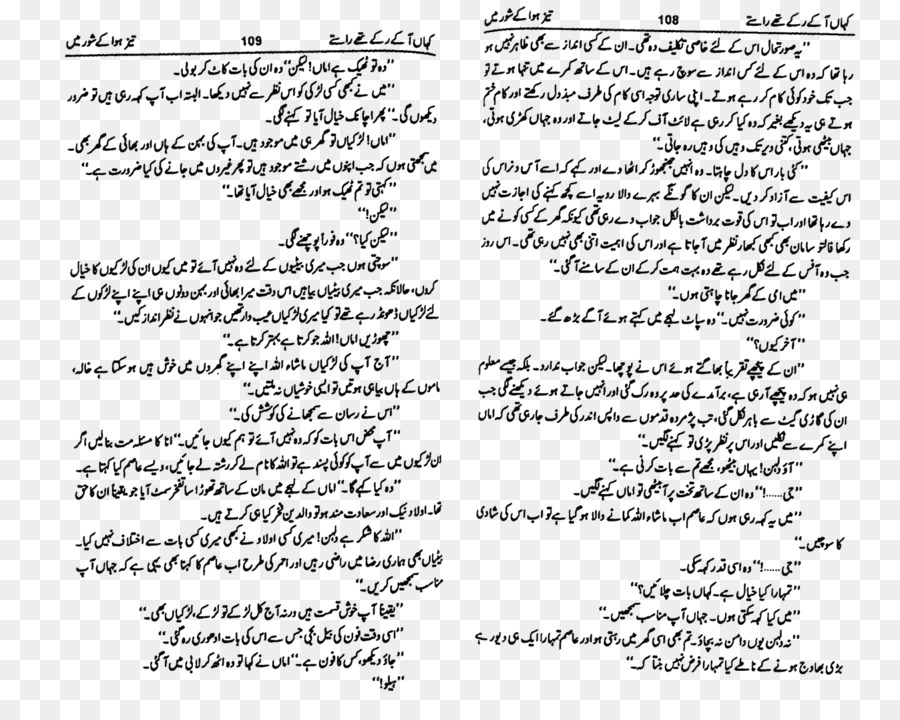 کہاں آ کے رکے تھے راستے 108 تیز ہوا کے شور میں
”یہ صورتحال اس کے لئے خاصی تکلیف دہ تھی۔ ان کے کسی انداز سے بھی ظاہر نہیں ہو
رہا تھا کہ وہ اس کے لئے کس انداز سے سوچ رہے ہیں۔ اس کے ساتھ کمرے میں تنہا ہوتے تو
جب تک خود کوئی کام کر رہے ہوتے۔ اپنی ساری توجہ اسی کام کی طرف مبذول رکھتے اور کام ختم
ہوتے ہی یہ دیکھے بغیر کہ وہ کیا کر رہی ہے لائٹ آف کر کے لیٹ جاتے اور وہ جہاں کھڑی ہوتی،
جہاں بیٹھی ہوتی، کتنی دیر تک وہیں کی وہیں رہ جاتی۔“
”کئی بار اس کا دل چاہتا۔ وہ انہیں جھنجھوڑ کر اٹھا دے اور کہے کہ اسے آس و نراس کی
اس کیفیت سے آزاد کر دیں۔ لیکن ان کا گونگے بہرے والا رویہ اسے کچھ کہنے کی اجازت نہیں
دے رہا تھا اور اب تو اس کی قوت برداشت بالکل جواب دے رہی تھی کیونکہ گھر کے کسی کونے میں
رکھا فالتو سامان بھی کبھی کبھار نظر میں آ جاتا ہے اور اس کی اہمیت اتنی بھی نہیں رہی تھی۔ اس روز
جب وہ آفس کے لئے نکل رہے تھے وہ بہت ہمت کر کے ان کے سامنے آ گئی۔“
”میں امی کے گھر جانا چاہتی ہوں۔“
”کوئی ضرورت نہیں۔“ وہ سپاٹ لہجے میں کہتے ہوئے آگے بڑھ گئے۔
”آخر کیوں؟“
”ان کے پیچھے تقریباً بھاگتے ہوئے اس نے پوچھا۔ لیکن جواب ندارد۔ بلکہ جیسے معلوم
ہی نہیں ہو کہ وہ پیچھے آ رہی ہے، برآمدے کی حد پر وہ رک گئی اور انہیں جاتے ہوئے دیکھنے لگی جب
ان کی گاڑی گیٹ سے باہر نکل گئی، تب پژمردہ قدموں سے واپس اندر کی طرف جا رہی تھی کہ اماں
اپنے کمرے سے نکلیں اور اس پر نظر پڑی تو کہنے لگیں۔“
”آؤ دلہن! یہاں بیٹھو، مجھے تم سے بات کرنی ہے۔“
”جی......!“ وہ ان کے ساتھ تخت پر آ بیٹھی تو اماں کہنے لگیں۔
”میں یہ کہہ رہی ہوں کہ عاصم اب ماشاء اللہ کمانے والا ہو گیا ہے تو اب اس کی شادی
کا سوچیں۔“
”جی......!“ وہ اسی قدر کہہ سکی۔
”تمہارا کیا خیال ہے۔ کہاں بات چلائیں؟“
”میں کیا کہہ سکتی ہوں۔ جہاں آپ مناسب سمجھیں۔“
”نہ دلہن یوں دامن نہ بچاؤ۔ تم بھی اسی گھر میں رہتی ہو اور عاصم تمہارا ایک ہی دیور ہے
بڑی بھاوج ہونے کے ناطے کیا تمہارا فرض نہیں بنتا کہ۔“
کہاں آ کے رکے تھے راستے 109 تیز ہوا کے شور میں
”وہ تو ٹھیک ہے اماں! لیکن“ وہ ان کی بات کاٹ کر بولی۔
”میں نے کبھی کسی لڑکی کو اس نظر سے نہیں دیکھا۔ البتہ اب آپ کہہ رہی ہیں تو ضرور
دیکھوں گی۔“ پھر اچانک خیال آیا تو کہنے لگی۔
”اماں! لڑکیاں تو گھر ہی میں موجود ہیں۔ آپ کی بہن کے ہاں اور بھائی کے گھر بھی۔
میں سمجھتی ہوں کہ جب اپنوں میں رشتے موجود ہیں تو پھر غیروں میں جانے کی کیا ضرورت ہے۔“
”کہتی تو تم ٹھیک ہو اور مجھے بھی خیال آیا تھا۔“
”لیکن!“
”لیکن کیا؟“ وہ فوراً پوچھنے لگی۔
”سوچتی ہوں جب میری بیٹیوں کے لئے وہ نہیں آئے تو میں کیوں ان کی لڑکیوں کا خیال
کروں، حالانکہ جب میری بیٹیاں بیاہیں اس وقت میرا بھائی اور بہن دونوں ہی اپنے اپنے لڑکوں کے
لئے لڑکیاں ڈھونڈ رہے تھے تو کیا میری لڑکیاں عیب دار تھیں جو انہوں نے نظر انداز کیں۔“
”چھوڑیں اماں! اللہ جو کرتا ہے بہتر کرتا ہے۔“
”آج آپ کی لڑکیاں ماشاء اللہ اپنے اپنے گھروں میں خوش ہیں ہو سکتا ہے خالہ،
ماموں کے ہاں بیاہی ہوتیں تو ایسی خوشیاں نہ ملتیں۔“
”اس نے رسان سے سمجھانے کی کوشش کی۔“
”آپ محض اس بات کو کہ وہ نہیں آئے تو ہم کیوں جائیں۔“ انا کا مسئلہ مت بنا لیں اگر
ان لڑکیوں میں سے آپ کو کوئی پسند ہے تو اللہ کا نام لے کر رشتہ لے جائیں، ویسے عاصم کیا کہتا ہے۔
”وہ کیا کہے گا۔“ اماں کے لہجے میں مان کے ساتھ تھوڑا سا تفخر سمٹ آیا جو یقیناً ان کا حق
تھا۔ اولاد نیک اور سعادت مند ہو تو والدین فخر کیا ہی کرتے ہیں۔
”اللہ کا شکر ہے دلہن! میری کسی اولاد نے کبھی میری کسی بات سے اختلاف نہیں کیا۔
بیٹیاں بھی ہماری رضا میں راضی رہیں اور احمر کی طرح اب عاصم کا کہنا بھی یہی ہے کہ جہاں آپ
مناسب سمجھیں کریں۔“
”یقیناً آپ خوش قسمت ہیں ورنہ آج کل لڑکے تو لڑکے، لڑکیاں بھی۔“
”اسی وقت فون کی بیل بجی جس سے اس کی بات ادھوری رہ گئی۔“
”جاؤ دیکھو، کس کا فون ہے۔“ اماں نے کہا تو وہ اٹھ کر لابی میں آ گئی۔
”ہیلو!“